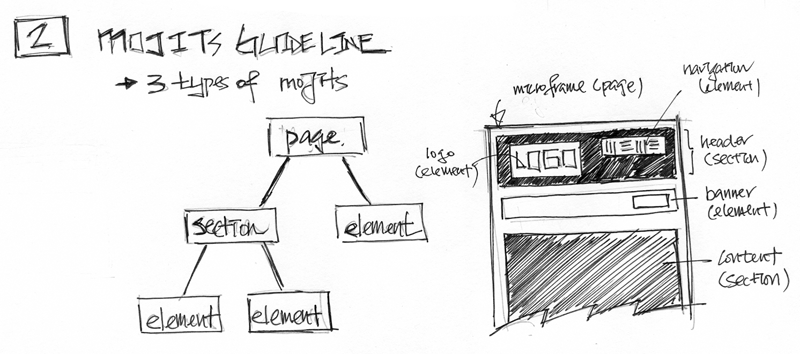 2 MOJITS GUIDELINE
→ 3 types of mojits
page
section
element
element
element
microframe (page)
navigation
(element)
logo
(element)
LOGO
header
(section)
banner
(element)
content
(section)